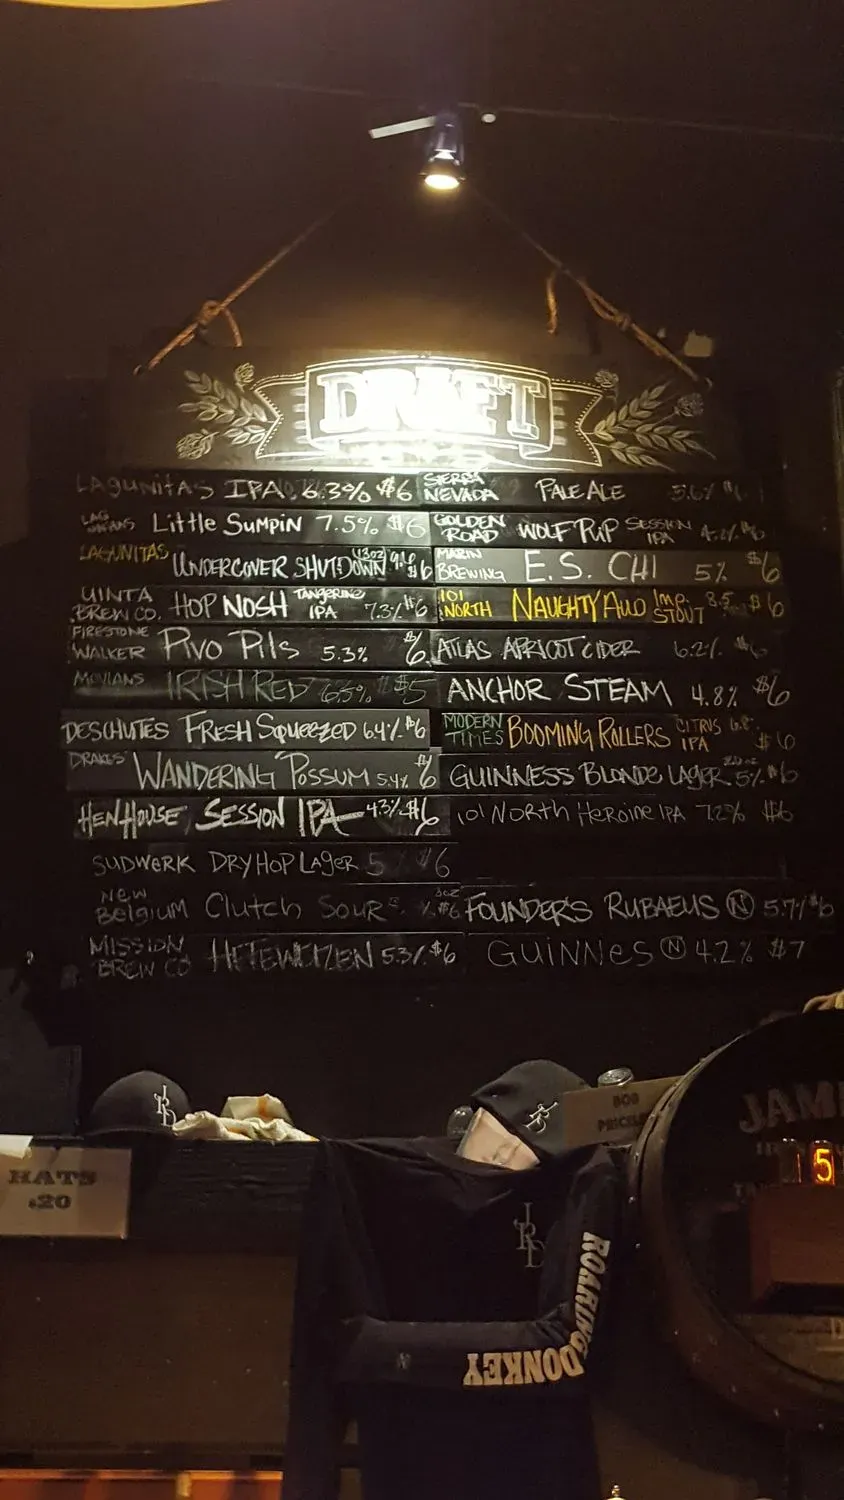 DRAFT
LAGUNITAS IPA 6.3% $6
LITTLE SUMPIN 7.5% $6
LAGUNITAS UNDERCOVER SHUTDOWN $6
UINTA BREW CO. HOP NOSH TANGERINE IPA 7.3% $6
FIRESTONE WALKER PIVO PILS 5.3% $6
IRISH RED 6.5% $5
DESCHUTES FRESH SQUEEZED 6.4% $6
DRAKES' WANDERING POSSUM 5.4% $6
HENHOUSE SESSION IPA 4.3% $6
SUDWERK DRY HOP LAGER 5% $6
NEW BELGIUM CLUTCH SOUR $6
MISSION BREW CO HEFEWEIZEN 5.3% $6
SIERRA NEVADA PALE ALE 5.6%
GOLDEN ROAD WOLF PUP SESSION IPA $6
MARIN BREWING E.S. CHI 5% $6
101 NORTH NAUGHTY AUD IMP. STOUT 8.5 $6
ATLAS APRICOT CIDER 6.2% $6
ANCHOR STEAM 4.8% $6
MODERN TIMES BOOMING ROLLERS CITRUS IPA 6.8% $6
GUINNESS BLONDE LAGER 5% $6
101 NORTH HEROINE IPA 7.2% $6
FOUNDER'S RUBAEUS N 5.7% $6
GUINNES N 4.2% $7
HATS
$20
JRD
JRD
BOB
JRD
ROARING DONKEY
JAM
5